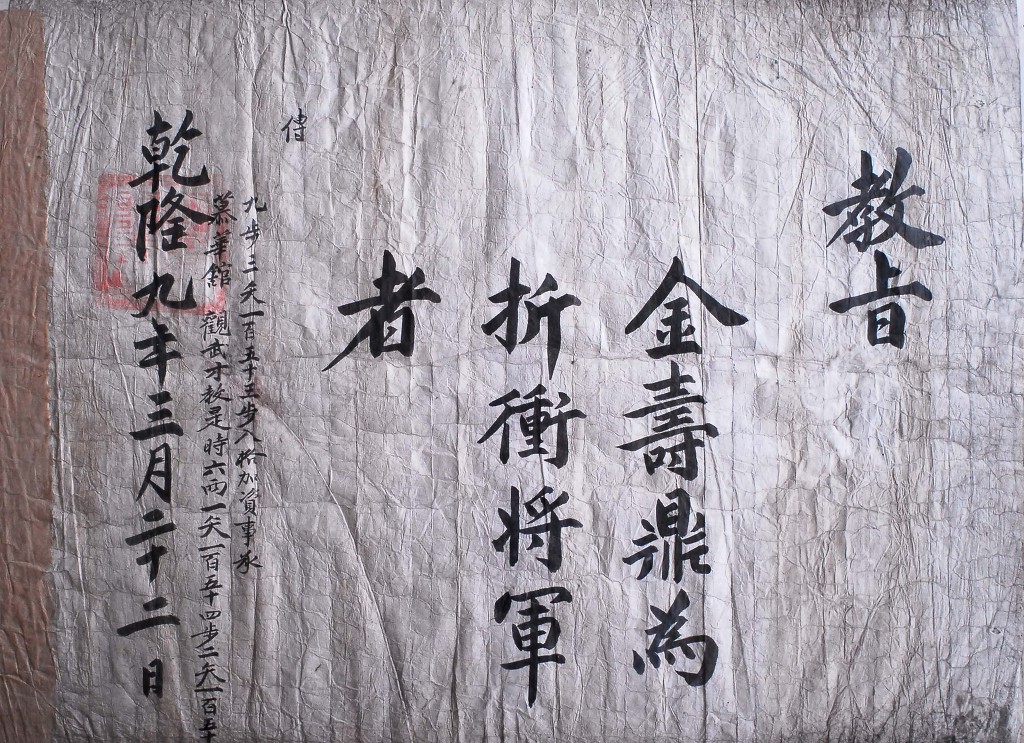 教旨
金壽鼎為
折衝将軍
者
乾隆九年三月二十二日
慕華館 觀武才教是時六両一矢一百五十四步二矢一百五十
九步三矢一百五十三步入格加資事承
傳